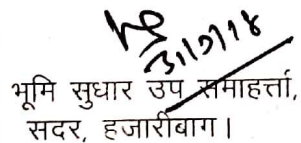 3/7/18
भूमि सुधार उप समाहर्त्ता,
सदर, हजारीबाग।